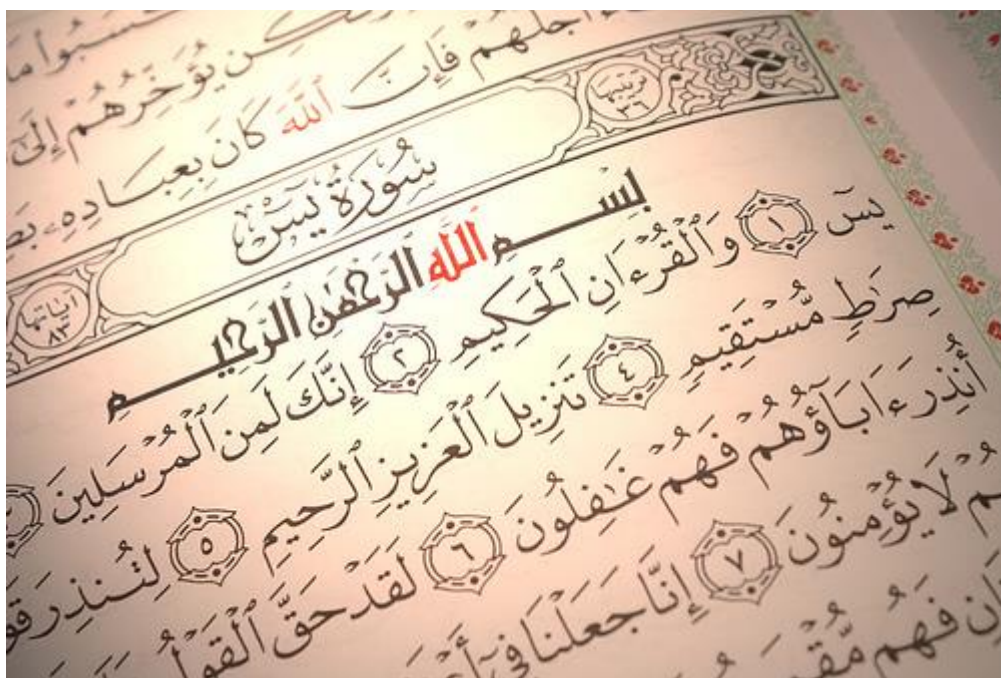 يُؤَخِّرُهُمْ إِلَىٰ
أَجَلُهُمْ فَإِنَّ ٱللَّهَ كَانَ بِعِبَادِهِۦ
سُورَةُ يسٓ
ترتيبها ٣٦
آياتها ٨٣
بِسْمِ ٱللَّهِ ٱلرَّحْمَٰنِ ٱلرَّحِيمِ
يسٓ ١ وَٱلْقُرْءَانِ ٱلْحَكِيمِ ٢ إِنَّكَ لَمِنَ ٱلْمُرْسَلِينَ
صِرَٰطٍ مُّسْتَقِيمٍ ٤ تَنزِيلَ ٱلْعَزِيزِ ٱلرَّحِيمِ ٥ لِتُنذِرَ
أُنذِرَ ءَابَآؤُهُمْ فَهُمْ غَٰفِلُونَ ٦ لَقَدْ حَقَّ ٱلْقَوْلُ
لَا يُؤْمِنُونَ ٧ إِنَّا جَعَلْنَا فِىٓ
فَهُم